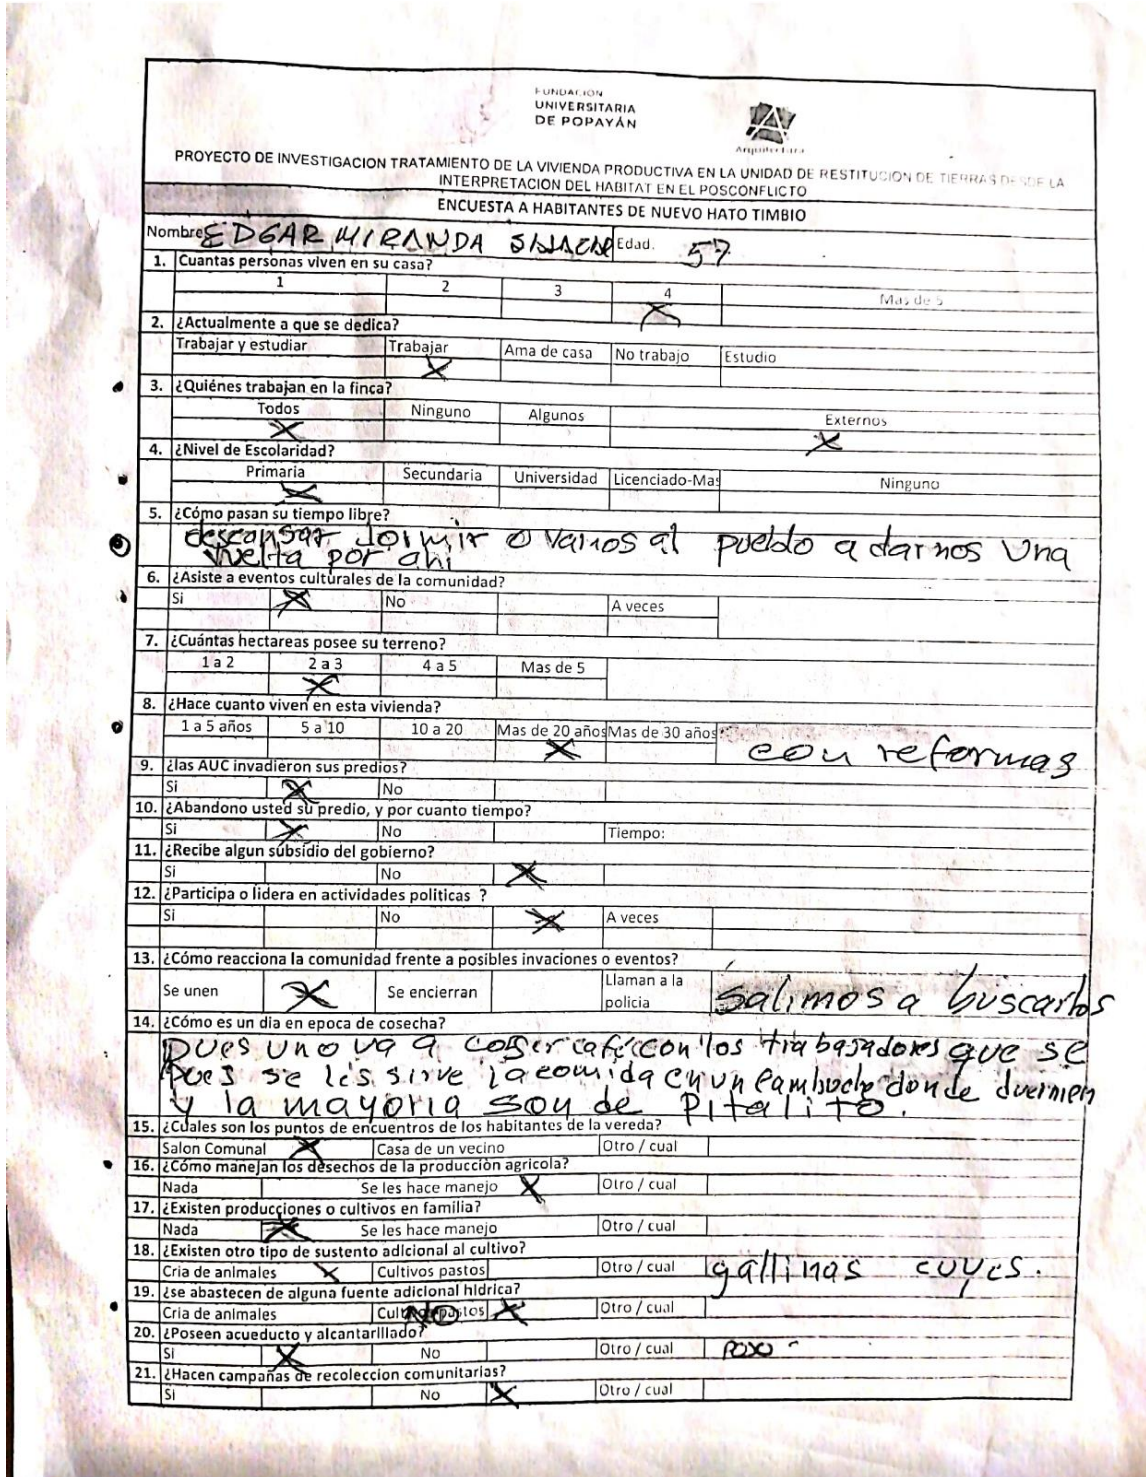 FUNDACION
UNIVERSITARIA
DE POPAYÁN
Arquitectura
PROYECTO DE INVESTIGACION TRATAMIENTO DE LA VIVIENDA PRODUCTIVA EN LA UNIDAD DE RESTITUCION DE TIERRAS DESDE LA
INTERPRETACION DEL HABITAT EN EL POSCONFLICTO
ENCUESTA A HABITANTES DE NUEVO HATO TIMBIO
Nombre EDGAR MIRANDA Edad. 57
1. Cuantas personas viven en su casa?
1 2 3 4 Mas de 5
X
2. ¿Actualmente a que se dedica?
Trabajar y estudiar Trabajar Ama de casa No trabajo Estudio
X
3. ¿Quiénes trabajan en la finca?
Todos Ninguno Algunos Externos
X X
4. ¿Nivel de Escolaridad?
Primaria Secundaria Universidad Licenciado-Mas Ninguno
X
5. ¿Cómo pasan su tiempo libre?
descansar dormir o vamos al pueblo a darnos una
vuelta por ahi
6. ¿Asiste a eventos culturales de la comunidad?
Si X No A veces
7. ¿Cuántas hectareas posee su terreno?
1 a 2 2 a 3 4 a 5 Mas de 5
X
8. ¿Hace cuanto viven en esta vivienda?
1 a 5 años 5 a 10 10 a 20 Mas de 20 años Mas de 30 años
X con reformas
9. ¿las AUC invadieron sus predios?
Si X No
10. ¿Abandono usted su predio, y por cuanto tiempo?
Si X No Tiempo:
11. ¿Recibe algun subsidio del gobierno?
Si No X
12. ¿Participa o lidera en actividades politicas ?
Si No X A veces
13. ¿Cómo reacciona la comunidad frente a posibles invaciones o eventos?
Se unen X Se encierran Llaman a la policia salimos a buscarlos
14. ¿Cómo es un dia en epoca de cosecha?
pues uno va a coger café con los trabajadores que se
pues se les sirve la comida en un cambuche donde duermen
y la mayoria son de Pitalito.
15. ¿Cuales son los puntos de encuentros de los habitantes de la vereda?
Salon Comunal X Casa de un vecino Otro / cual
16. ¿Cómo manejan los desechos de la producciòn agricola?
Nada Se les hace manejo X Otro / cual
17. ¿Existen producciones o cultivos en familia?
Nada X Se les hace manejo Otro / cual
18. ¿Existen otro tipo de sustento adicional al cultivo?
Cria de animales X Cultivos pastos Otro / cual gallinas cuyes.
19. ¿se abastecen de alguna fuente adicional hidrica?
Cria de animales Cultivos pastos NO X Otro / cual
20. ¿Poseen acueducto y alcantarillado?
Si X No Otro / cual poxo
21. ¿Hacen campañas de recoleccion comunitarias?
Si No X Otro / cual